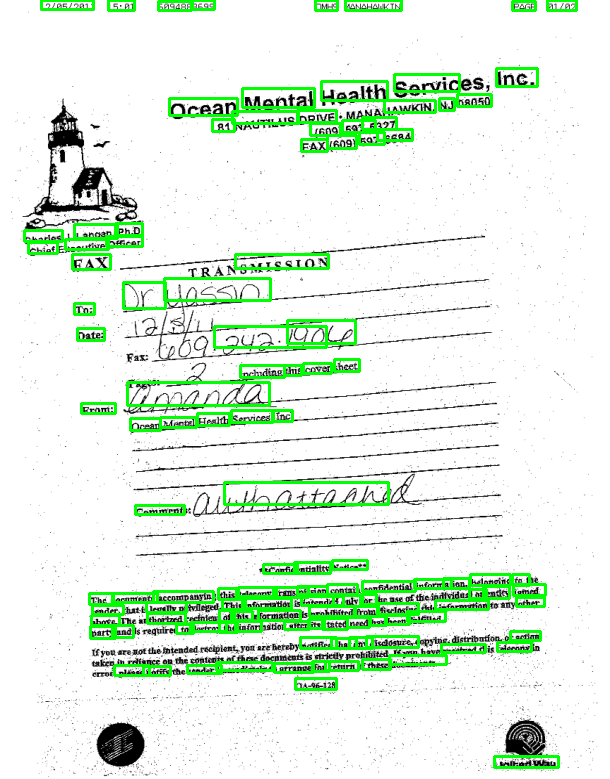 2/05/2011 15:01 OMHS MANAHAWKIN PAGE 01/02
Ocean Mental Health Services, Inc.
81 NAUTILUS DRIVE • MANAHAWKIN, NJ 08050
(609) 597-5327
FAX (609) 597-6684
Charles J. Langan Ph.D
Chief Executive Officer
FAX TRANSMISSION
To: Dr Yassin
Date: 12/5/11
Fax: 609.242.1906
Pages: 2 including this cover sheet
From: Amanda
Ocean Mental Health Services Inc
Comments: auth attached
**Confidentiality Notice**
The documents accompanying this telecopy transmission contain confidential information, belonging to the
sender, that is legally privileged. This information is intended only for the use of the individual or entity named
above. The authorized recipient of this information is prohibited from disclosing this information to any other
party and is required to destroy the information after its stated need has been fulfilled.
If you are not the intended recipient, you are hereby notified that any disclosure, copying, distribution, or action
taken in reliance on the contents of these documents is strictly prohibited. If you have received this telecopy in
error, please notify the sender immediately to arrange for return of these documents.
OA-96-128
United Way